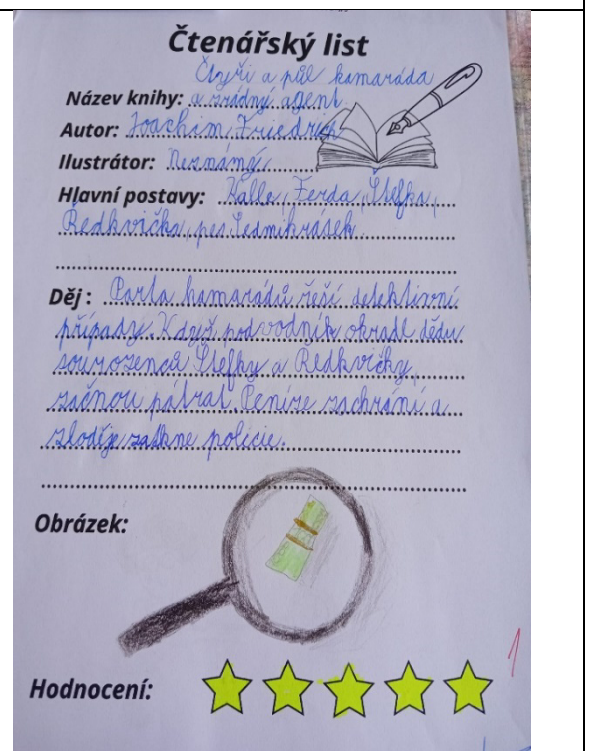 Čtenářský list
Čtyři a půl kamaráda
Název knihy: a zrádný agent
Autor: Joachim Friedrich
Ilustrátor: Neznámý
Hlavní postavy: Kalle, Ferda, Štefka,
Ředkvička, pes Sedmikrásek
Děj: Parta kamarádů řeší detektivní
případy. Když podvodník okradl dědu
sourozenců Štefky a Ředkvičky,
začnou pátrat. Peníze zachrání a
zloděje zatkne policie.
Obrázek:
1
Hodnocení: